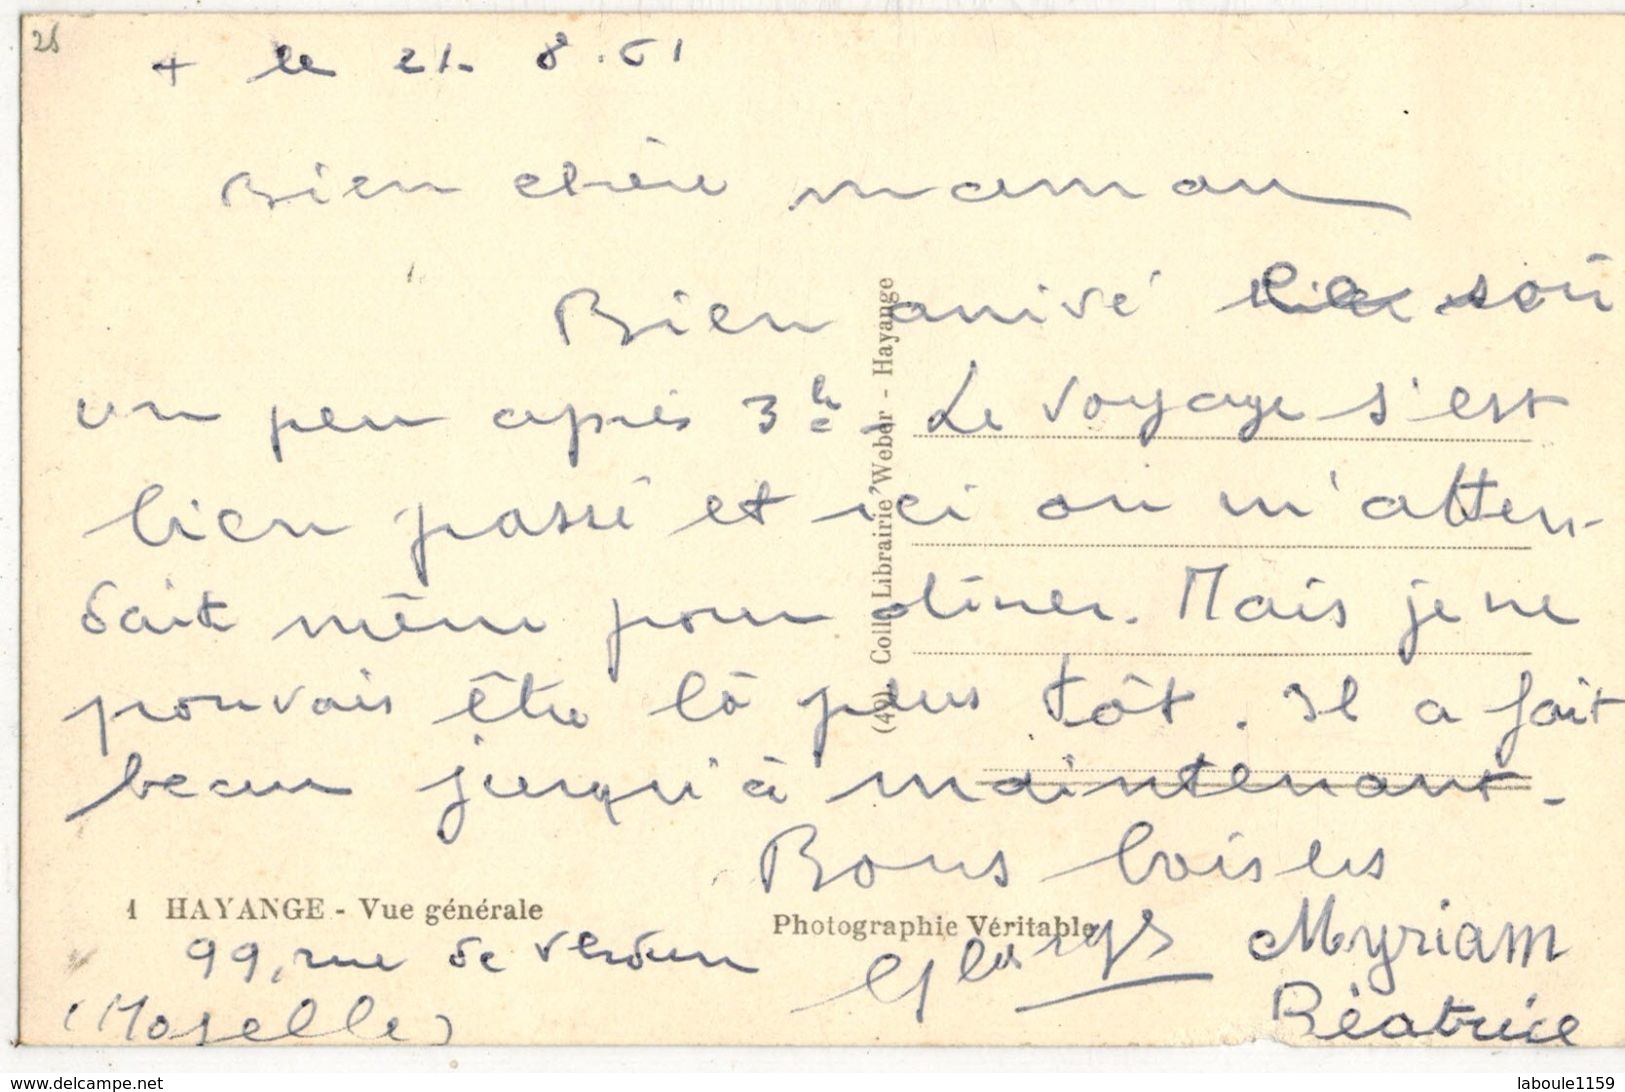 25
+ le 21. 8. 61
Bien chère maman
Bien arrivé soir
un peu après 3h. Le voyage s'est
bien passé et ici on m'atten-
dait même pour dîner. Mais je ne
pouvais être là plus tôt. Il a fait
beau jusqu'à maintenant.
Bons baisers
Myriam
Béatrice
1 HAYANGE - Vue générale
Photographie Véritable
99, rue de Verdun
(Moselle)
(49) Coll. Librairie Weber - Hayange
www.delcampe.net
laboule1159